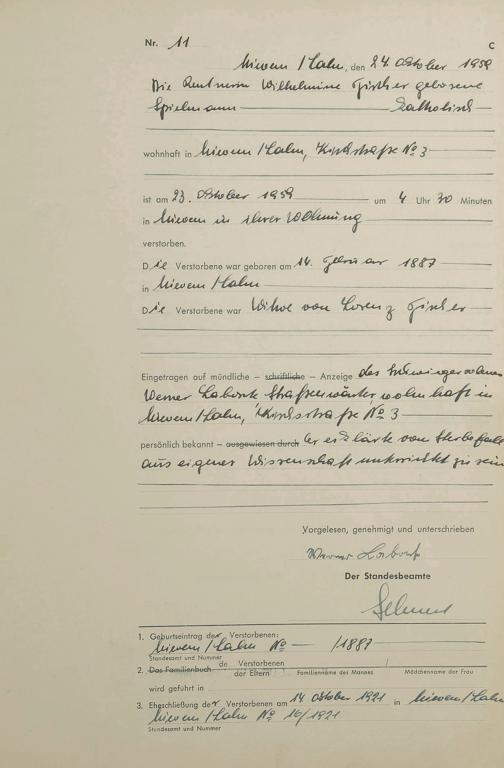 Nr. 11 C
Nievern/Lahn, den 24. Oktober 1959
Die Rentnerin Wilhelmine Fischer geborene
Spielmann Katholisch
wohnhaft in Nievern/Lahn, Kirchstraße No 3
ist am 23. Oktober 1959 um 4 Uhr 30 Minuten
in Nievern in ihrer Wohnung
verstorben.
Die Verstorbene war geboren am 14. Februar 1887
in Nievern/Lahn
Die Verstorbene war Witwe von Lorenz Fischer
Eingetragen auf mündliche – schriftliche – Anzeige des Schwiegersohnes
Werner Straßenwärter, wohnhaft in
Nievern/Lahn, Kirchstraße No 3
persönlich bekannt – ausgewiesen durch Er erklärte vom Sterbefall
aus eigener Wissenschaft unterrichtet zu sein
Vorgelesen, genehmigt und unterschrieben
Werner
Der Standesbeamte
1. Geburtseintrag der Verstorbenen:
Nievern/Lahn No — /1887
Standesamt und Nummer
2. Das Familienbuch de Verstorbenen
der Eltern Familienname des Mannes Mädchenname der Frau
wird geführt in
3. Eheschließung der Verstorbenen am 14. Oktober 1921 in Nievern/Lahn
Nievern/Lahn No 16/1921
Standesamt und Nummer